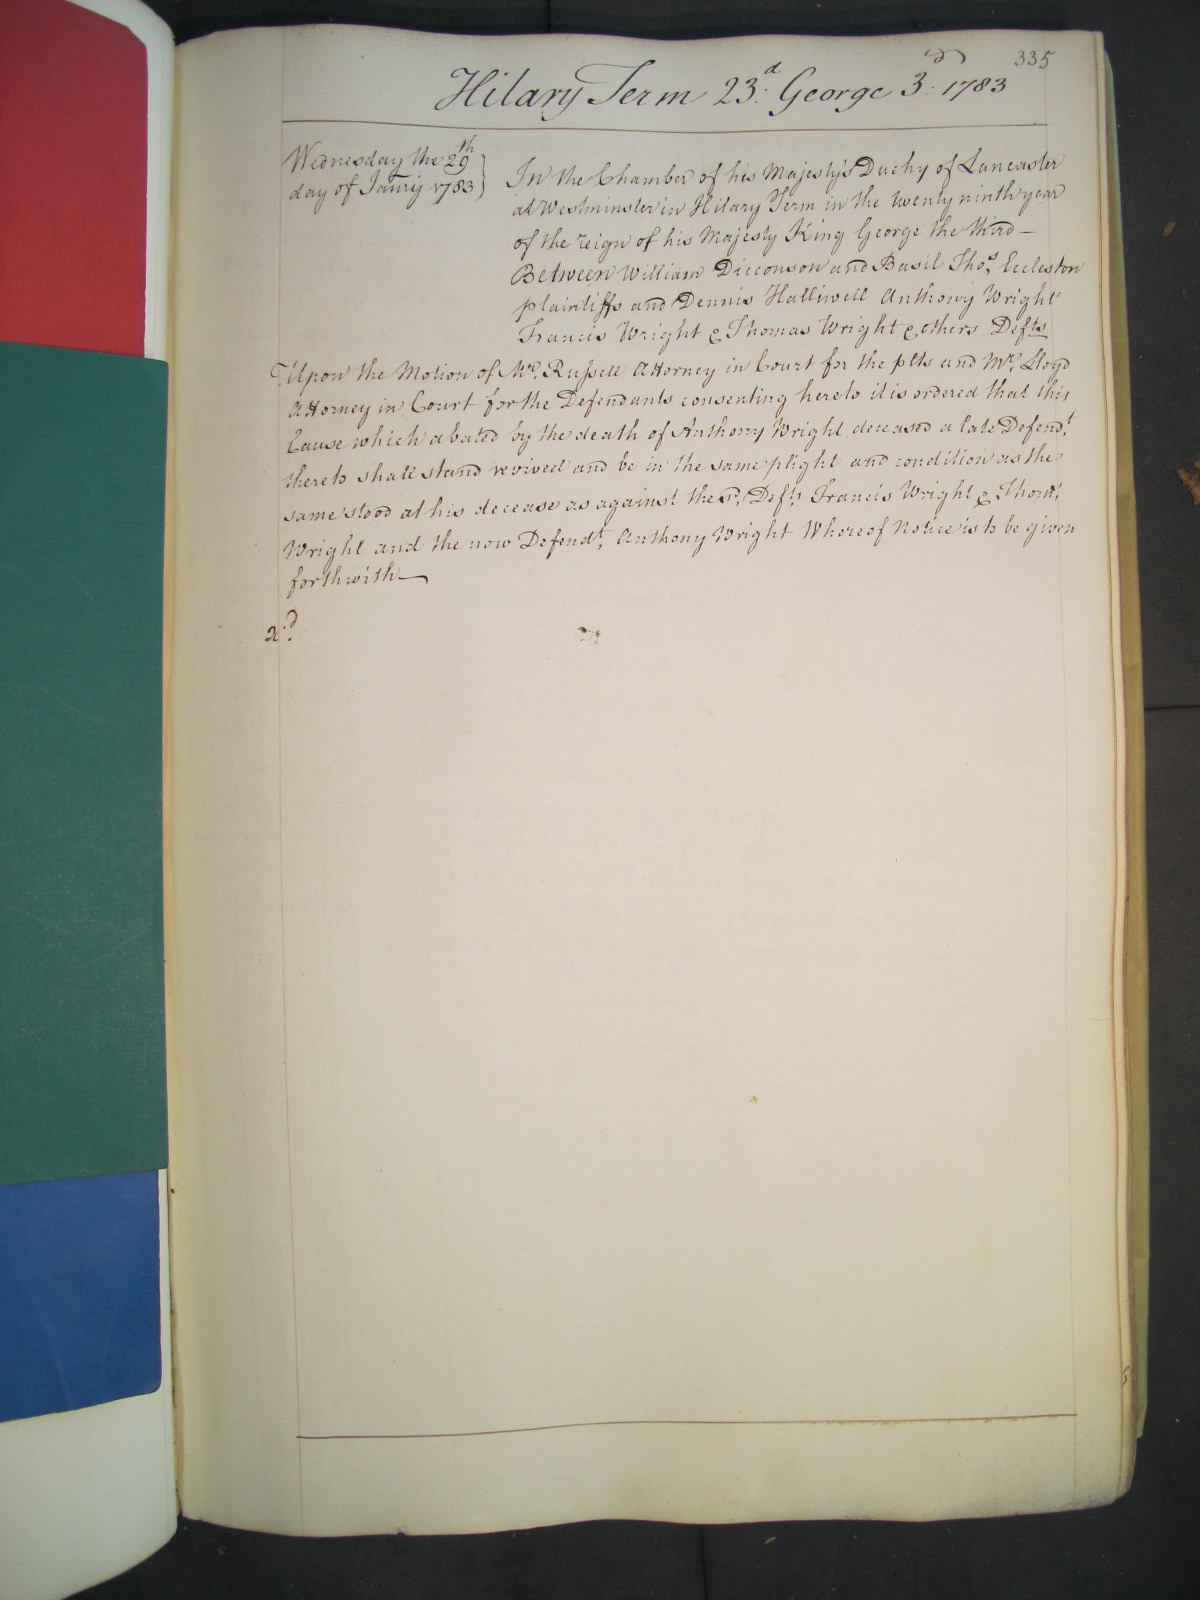 335
Hilary Term 23.d George 3.d 1783
Wednesday the 29th
day of Janry 1783
In the Chamber of his Majesty's Duchy of Lancaster
at Westminster in Hilary Term in the twenty ninth year
of the reign of his Majesty King George the third —
Between William Dicconson and Basil Thos. Eccleston
plaintiffs and Dennis Halliwell Anthony Wright
Francis Wright & Thomas Wright & others Defts
Upon the Motion of Mr. Russell Attorney in Court for the plts and Mr. Lloyd
Attorney in Court for the Defendants consenting hereto it is ordered that this
Cause which abated by the death of Anthony Wright deceased a late Defendt.
thereto shall stand revived and be in the same plight and condition as the
same stood at his decease as against the sd. Defts. Francis Wright & Thoms.
Wright and the now Defendt. Anthony Wright Whereof Notice is to be given
forthwith —